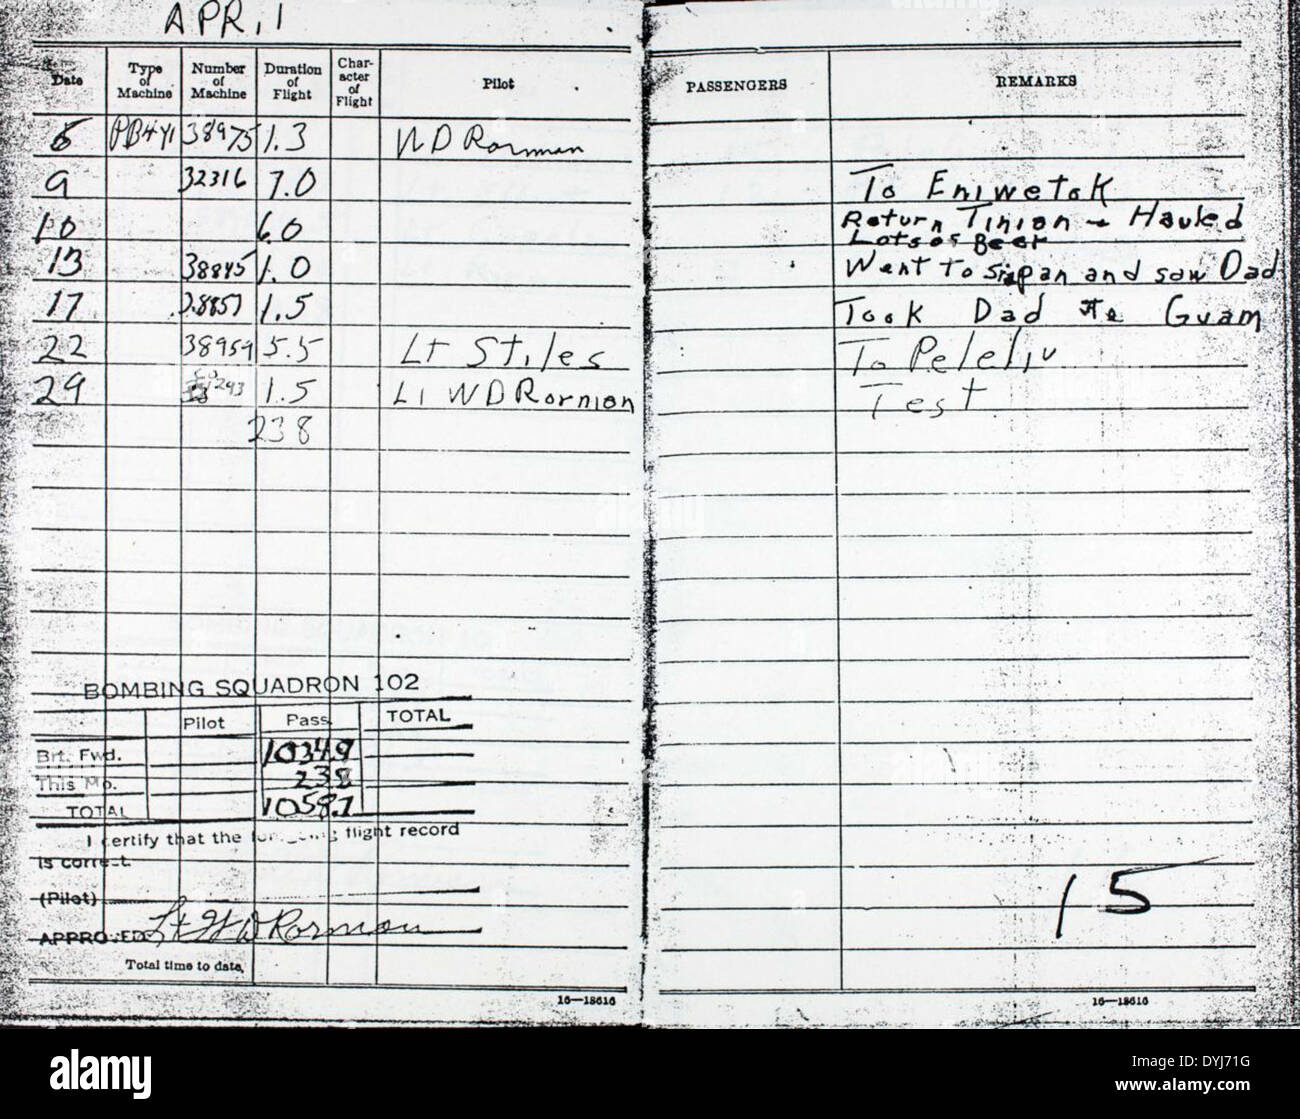 APRIL
Date Type of Machine Number of Machine Duration of Flight Character of Flight Pilot PASSENGERS REMARKS
5 PB4Y1 38975 1.3 W D Rorman
9 32316 7.0 To Eniwetok
10 6.0 Return Tinian - Hauled Lots of Beer
13 38845 1.0 Went to Siapan and saw Dad
17 38857 1.5 Took Dad to Guam
22 38959 5.5 Lt Stiles To Peleliu
29 1.5 Lt W D Rorman Test
23 8
BOMBING SQUADRON 102
Pilot Pass. TOTAL
Brt. Fwd. 1034.9
This Mo. 23.8
TOTAL 1058.7
I certify that the flight record
is correct.
(Pilot)
APPROVED Lt W D Rorman
Total time to date,
15
16—18616 16—18616
alamy
Image ID: DYJ71G
www.alamy.com